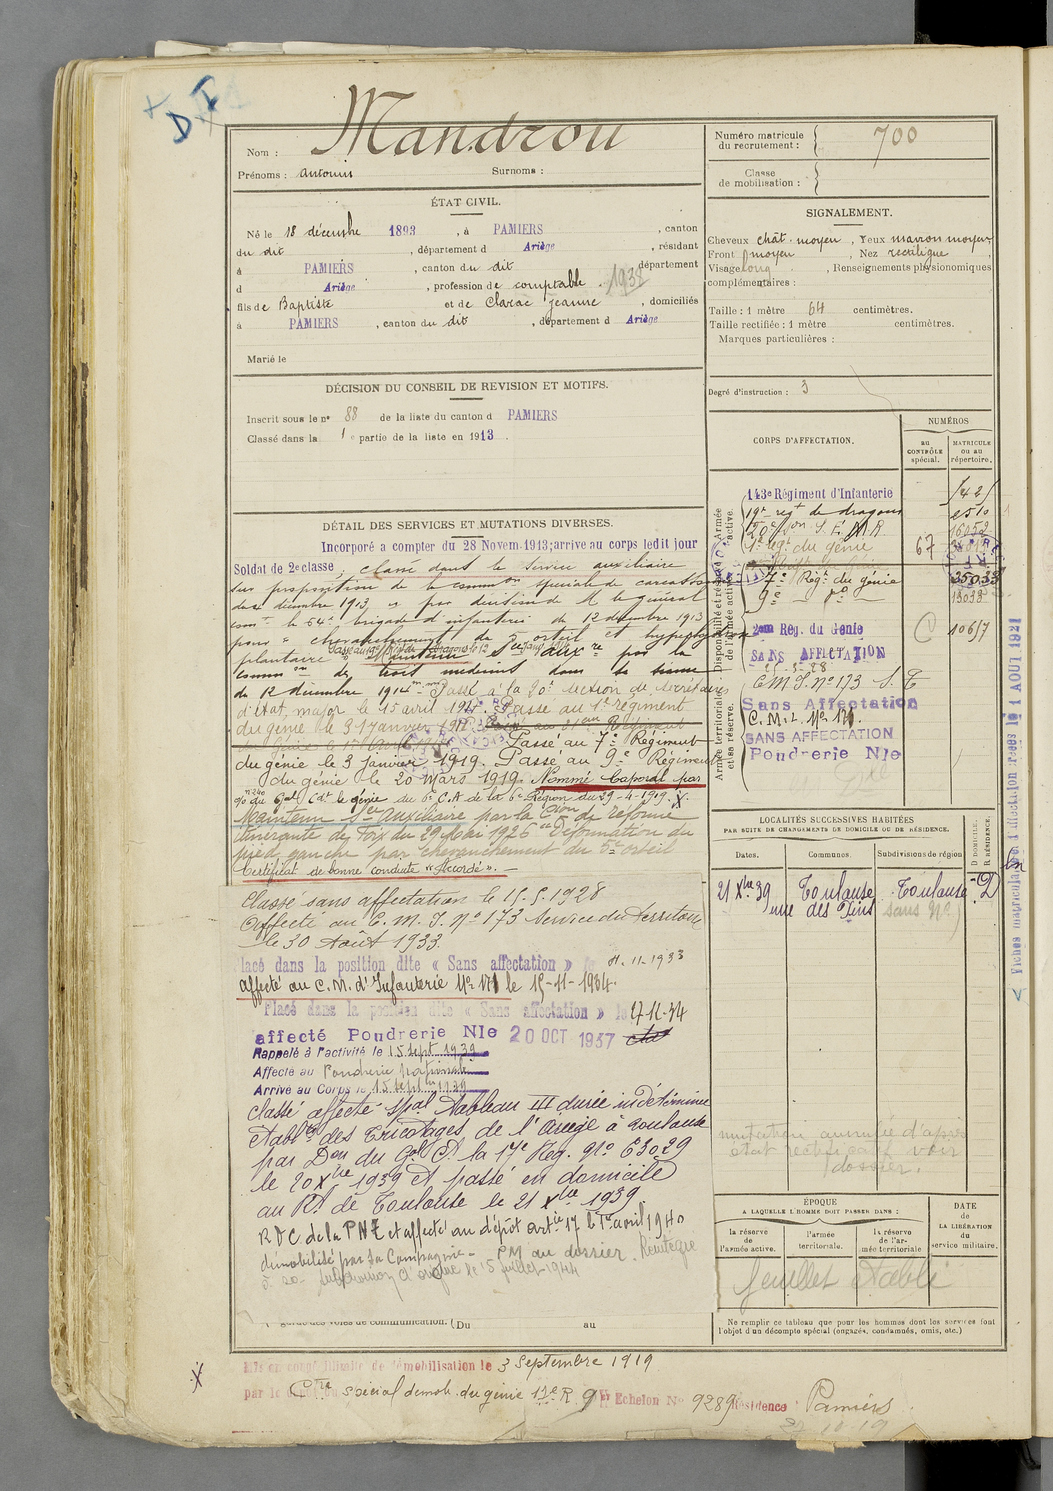 DI
Mandrou
Nom :
Prénoms : Antonin Surnoms :
Numéro matricule
du recrutement : 700
Classe
de mobilisation :
ÉTAT CIVIL.
Né le 18 décembre 1893, à PAMIERS, canton
du dit, département d Ariège, résidant
à PAMIERS, canton du dit département
d Ariège, profession de comptable. 1938
fils de Baptiste et de Clarac Jeanne, domiciliés
à PAMIERS, canton du dit, département d Ariège
Marié le
SIGNALEMENT.
Cheveux chât. moyen, Yeux marron moyen
Front moyen, Nez rectiligne,
Visage long, Renseignements physionomiques
complémentaires :
Taille : 1 mètre 64 centimètres.
Taille rectifiée : 1 mètre centimètres.
Marques particulières :
Degré d'instruction : 3
DÉCISION DU CONSEIL DE REVISION ET MOTIFS.
Inscrit sous le nº 88 de la liste du canton d PAMIERS
Classé dans la 1e partie de la liste en 1913.
DÉTAIL DES SERVICES ET MUTATIONS DIVERSES.
Incorporé a compter du 28 Novem. 1913; arrive au corps ledit jour
Soldat de 2e classe, classé dans le service auxiliaire
sur proposition de la common spéciale de Carcassonne
du décembre 1913, par décision de M le général
comt la 64e brigade d'infanterie du 12 décembre 1913
pour "chevauchement du orteil et hyperhydrose
plantaire" Sce aux re par la
comm on de trois médecins dans la
du 12 décembre 1914 Passé à la 20e section de secrétaires
d'état major le 15 avril 1917. Passé au 1er régiment
du génie le 31 janvier Passé au 21eme Régiment
du génie le Passé au 7e Régiment
du génie le 3 janvier 1919. Passé au 9e Régiment
du génie le 20 Mars 1919. Nommé Caporal par
o/o du Gal Cdt le génie du 6e C.A de la 6e Région du 29-4-1919. X.
Maintenu Sce Auxiliaire par la Cion de réforme
itinérante de Foix du 29 Mai 1926 "Déformation du
pied gauche par chevauchement du 5e orteil
Certificat de bonne conduite "Accordé".
Classé sans affectation le 15.5.1928
Affecté au C.M.I. Nº 173 Service du Territoire
le 30 Août 1933
Placé dans la position dite « Sans affectation » le 11.11-1933
affecté au C.M. d'Infanterie Nº 171 le 15-11-1934.
Placé dans la position dite « Sans affectation » le
affecté Poudrerie Nle 20 OCT 1937
Rappelé à l'activité le 15 sept 1939
Affecté au Poudrerie Nationale
Arrivé au Corps le 15 sept 1939
Classé affecté spal tableau III durée indéterminée
Etablts des Tricotages de l'Ariège à Toulouse
par Don du Gal Ct la 17e Rég. Nº 63029
le 20 Xbre 1939 et passé en domicile
au Rt de Toulouse le 21 Xbre 1939.
RDC de la PNE et affecté au dépôt artie 17 le 1er avril 1940
démobilisé par la Compagnie - PM au dossier. Réintégré
le 15 juillet 1944
garde des voies de communication. (Du au
CORPS D'AFFECTATION.
NUMÉROS
AU CONTRÔLE spécial.
MATRICULE ou au répertoire.
Armée active.
Disponibilité et réserve de l'armée active.
Armée territoriale et sa réserve.
143e Régiment d'Infanterie
19e regt de dragons 2510
20e son S.E.M.R 16052
1er regt du génie 67
7e Régt du génie 35033
9e do 13038
2eme Reg. du Génie C 10617
SANS AFFECTATION
25-5-28
CMI. Nº 173 S.T
Sans Affectation
C.M.I. Nº 171.
SANS AFFECTATION
Poudrerie Nle
LOCALITÉS SUCCESSIVES HABITÉES
PAR SUITE DE CHANGEMENTS DE DOMICILE OU DE RÉSIDENCE.
Dates. Communes. Subdivisions de région
D DOMICILE. R RÉSIDENCE.
21 Xbre 39 Toulouse Toulouse D
rue des Pins sans Nº)
mutation annulée d'après
état rectificatif voir
dossier.
ÉPOQUE
A LAQUELLE L'HOMME DOIT PASSER DANS :
la réserve de l'armée active.
l'armée territoriale.
la réserve de l'armée territoriale
DATE de LA LIBÉRATION du service militaire.
feuillet établi
Ne remplir ce tableau que pour les hommes dont les services font
l'objet d'un décompte spécial (engagés, condamnés, omis, etc.)
Fiches matricule et d'affectation créées le 1 AOUT 1921
Mis en congé illimité de démobilisation le 3 Septembre 1919
X par le Cie spécial démob. du génie 17e R. 9e Echelon Nº 9289 Résidence Pamiers.